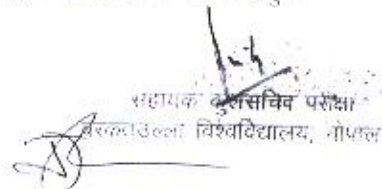 सहायक कुलसचिव परीक्षा
बरकतउल्ला विश्वविद्यालय, भोपाल